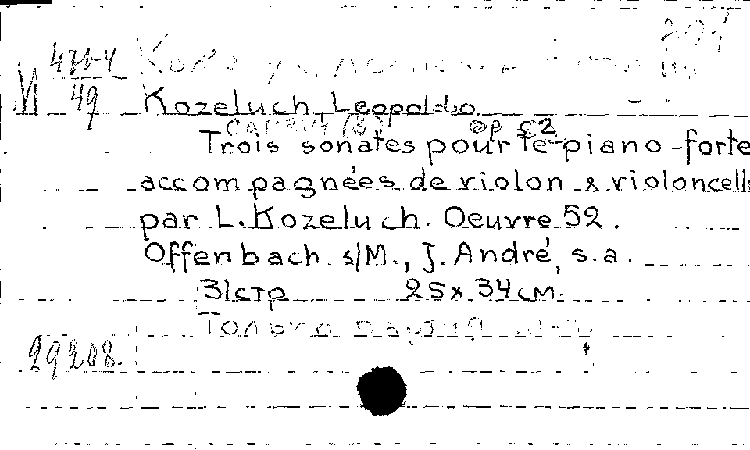 VI 471-4
49
Kozeluch, Leopoldo
op 52
Trois sonates pour le piano-forte
accompagnées de violon & violoncelle
par L. Kozeluch. Oeuvre 52.
Offenbach s/M., J. André, s.a.
31 стр 25 x 34 см.
Только партия
29208.